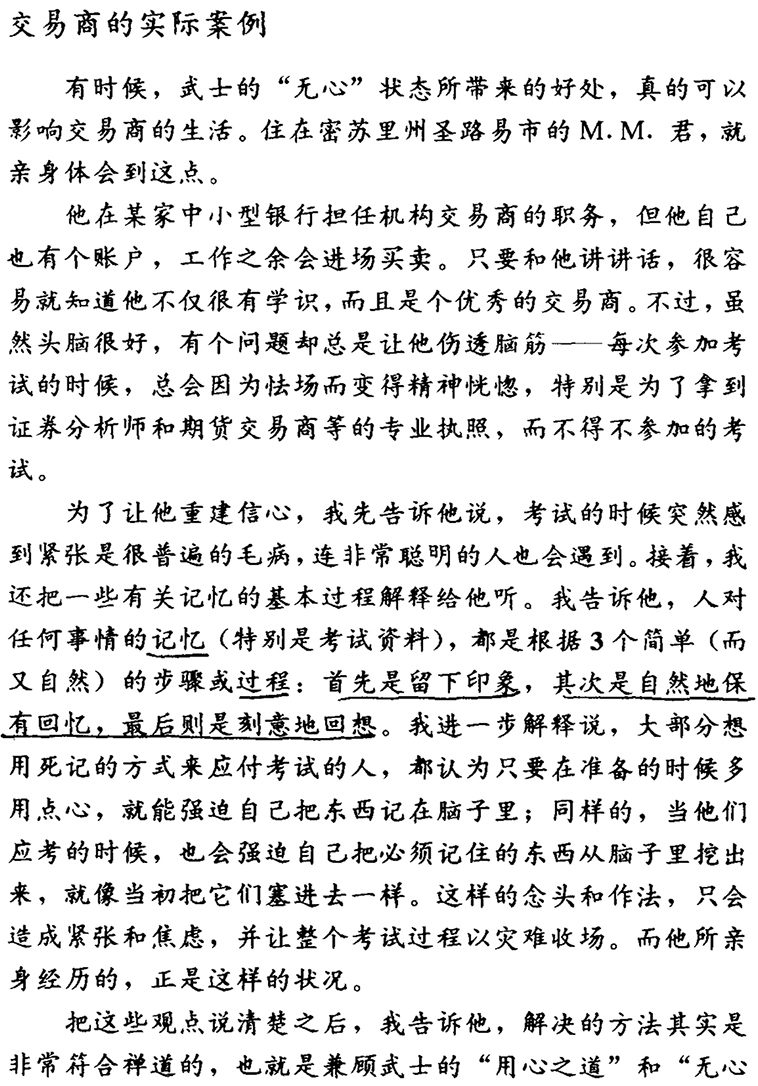 交易商的实际案例
有时候，武士的“无心”状态所带来的好处，真的可以
影响交易商的生活。住在密苏里州圣路易市的M.M. 君，就
亲身体会到这点。
他在某家中小型银行担任机构交易商的职务，但他自己
也有个账户，工作之余会进场买卖。只要和他讲讲话，很容
易就知道他不仅很有学识，而且是个优秀的交易商。不过，虽
然头脑很好，有个问题却总是让他伤透脑筋——每次参加考
试的时候，总会因为怯场而变得精神恍惚，特别是为了拿到
证券分析师和期货交易商等的专业执照，而不得不参加的考
试。
为了让他重建信心，我先告诉他说，考试的时候突然感
到紧张是很普遍的毛病，连非常聪明的人也会遇到。接着，我
还把一些有关记忆的基本过程解释给他听。我告诉他，人对
任何事情的记忆（特别是考试资料），都是根据3个简单（而
又自然）的步骤或过程：首先是留下印象，其次是自然地保
有回忆，最后则是刻意地回想。我进一步解释说，大部分想
用死记的方式来应付考试的人，都认为只要在准备的时候多
用点心，就能强迫自己把东西记在脑子里；同样的，当他们
应考的时候，也会强迫自己把必须记住的东西从脑子里挖出
来，就像当初把它们塞进去一样。这样的念头和作法，只会
造成紧张和焦虑，并让整个考试过程以灾难收场。而他所亲
身经历的，正是这样的状况。
把这些观点说清楚之后，我告诉他，解决的方法其实是
非常符合禅道的，也就是兼顾武士的“用心之道”和“无心